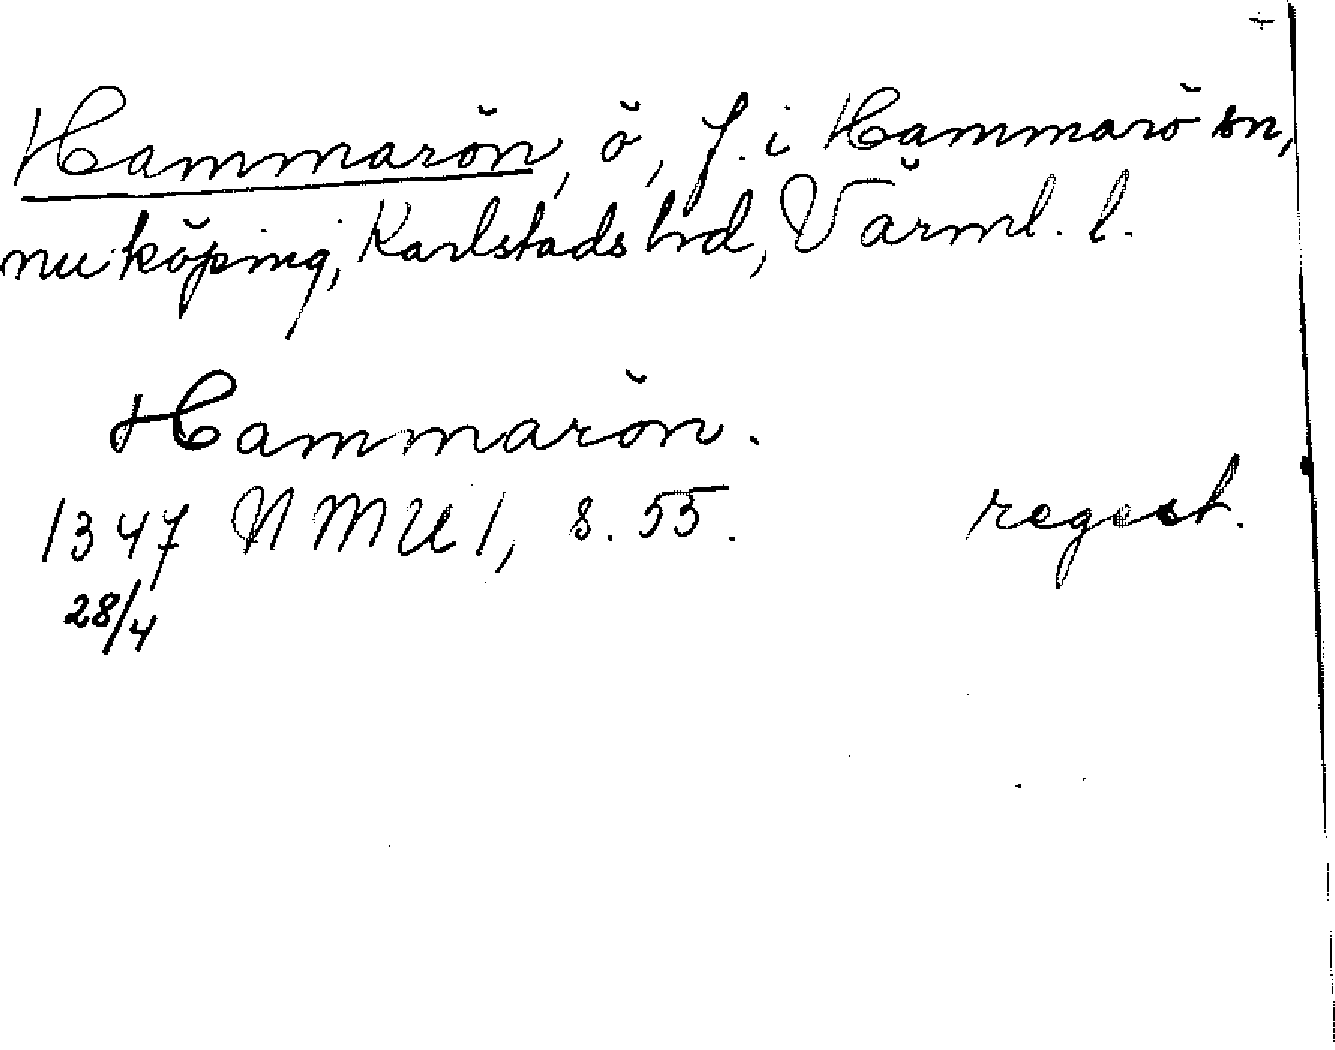 Hammarön, ö, f. i Hammarö sn,
nu köping, Karlstads hd, Värml. l.
Hammarön.
1347 NMU 1, s. 55. regest.
28/4